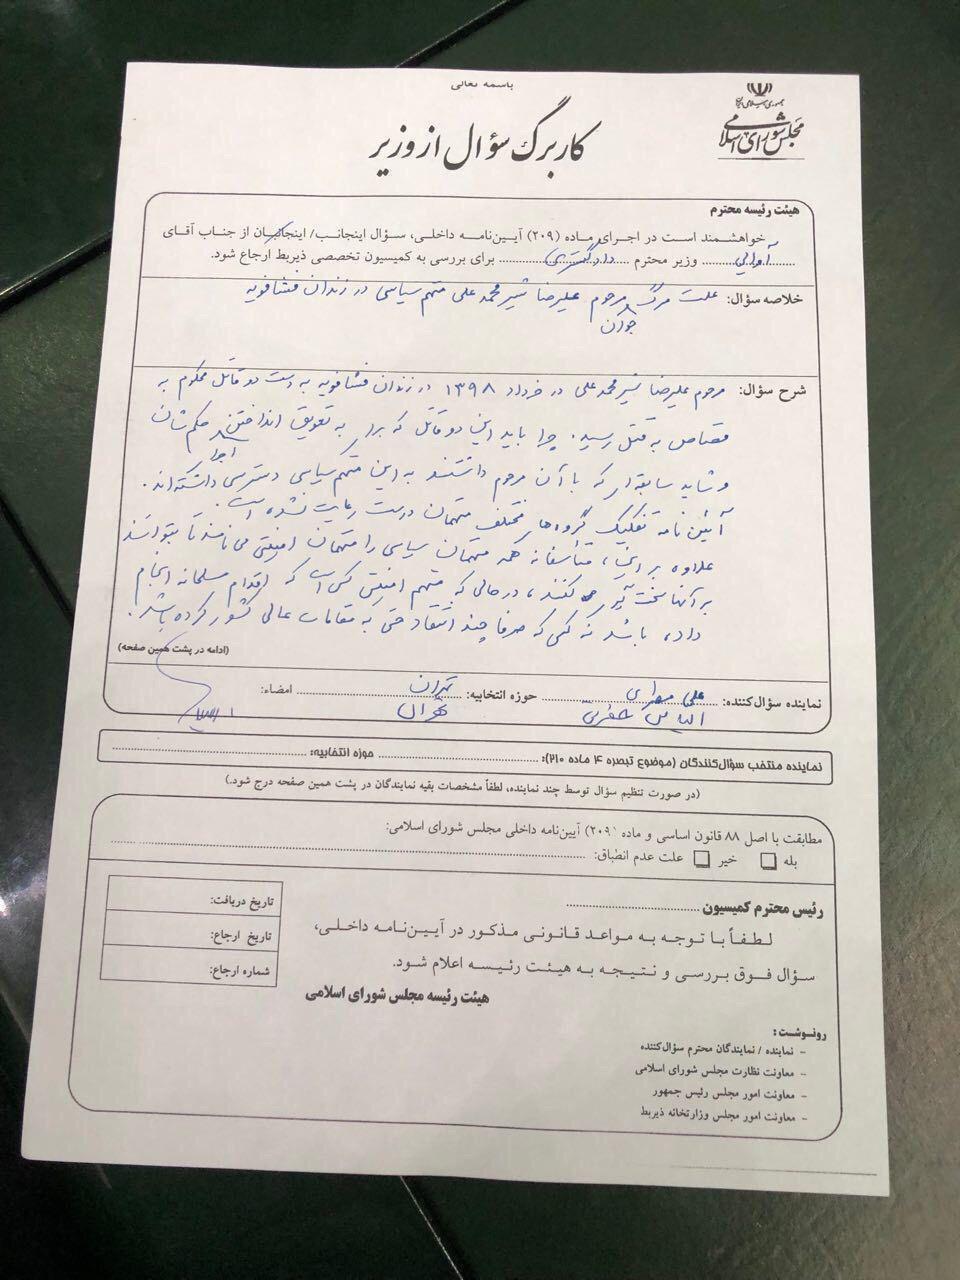 باسمه تعالی
جمهوری اسلامی ایران
مجلس شورای اسلامی
کاربرگ سؤال از وزیر
هیئت رئیسه محترم
خواهشمند است در اجرای ماده (۲۰۹) آیین‌نامه داخلی، سؤال اینجانب/ اینجانبان از جناب آقای
آوایی وزیر محترم دادگستری برای بررسی به کمیسیون تخصصی ذیربط ارجاع شود.
خلاصه سؤال: علت مرگ مرحوم علیرضا شیرمحمدعلی متهم سیاسی در زندان فشافویه
جوان
شرح سؤال: مرحوم علیرضا شیرمحمدعلی در خرداد ۱۳۹۸ در زندان فشافویه به دست دو قاتل محکوم به
قصاص به قتل رسید. چرا باید این دو قاتل که برای به تعویق انداختن حکم‌شان
اجرا
و شاید سابقه‌ای که با آن مرحوم داشتند به این متهم سیاسی دسترسی داشته‌اند.
آئین نامه تفکیک گروه‌های مختلف متهمان درست رعایت نشده است.
علاوه بر این، متأسفانه همه متهمان سیاسی را متهمان امنیتی می‌نامند تا بتوانند
بر آنها سخت‌گیری کنند، در حالی که متهم امنیتی کسی است که اقدام مسلحانه انجام
داده باشد نه کسی که صرفا چند انتقاد حتی به مقامات عالی کشور کرده باشد.
(ادامه در پشت همین صفحه)
نماینده سؤال‌کننده: علی مطهری حوزه انتخابیه: تهران امضاء:
الیاس حضرتی تهران
نماینده منتخب سؤال‌کنندگان (موضوع تبصره ۴ ماده ۲۱۰): حوزه انتخابیه:
(در صورت تنظیم سؤال توسط چند نماینده، لطفاً مشخصات بقیه نمایندگان در پشت همین صفحه درج شود.)
مطابقت با اصل ۸۸ قانون اساسی و ماده (۲۰۹) آیین‌نامه داخلی مجلس شورای اسلامی:
بله خیر علت عدم انطباق:
رئیس محترم کمیسیون
لطفاً با توجه به مواعد قانونی مذکور در آیین‌نامه داخلی،
سؤال فوق بررسی و نتیجه به هیئت رئیسه اعلام شود.
هیئت رئیسه مجلس شورای اسلامی
تاریخ دریافت:
تاریخ ارجاع:
شماره ارجاع:
رونوشت:
- نماینده / نمایندگان محترم سؤال‌کننده
- معاونت نظارت مجلس شورای اسلامی
- معاونت امور مجلس رئیس جمهور
- معاونت امور مجلس وزارتخانه ذیربط